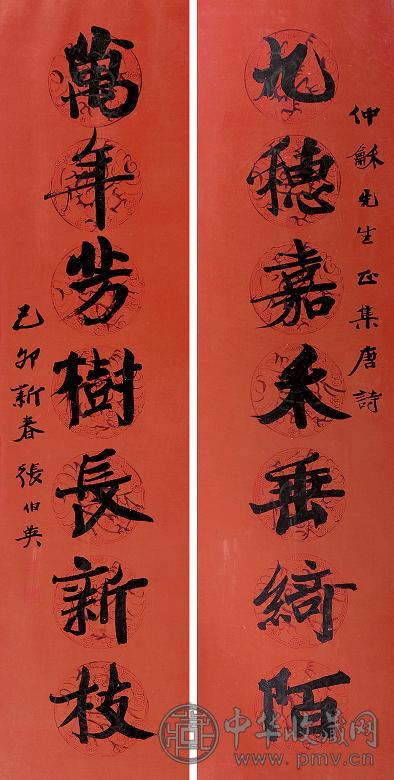 仲龢先生正集唐詩
九穗嘉禾垂綺陌
萬年芳樹長新枝
己卯新春張伯英
中华收藏网
www.pmv.cn